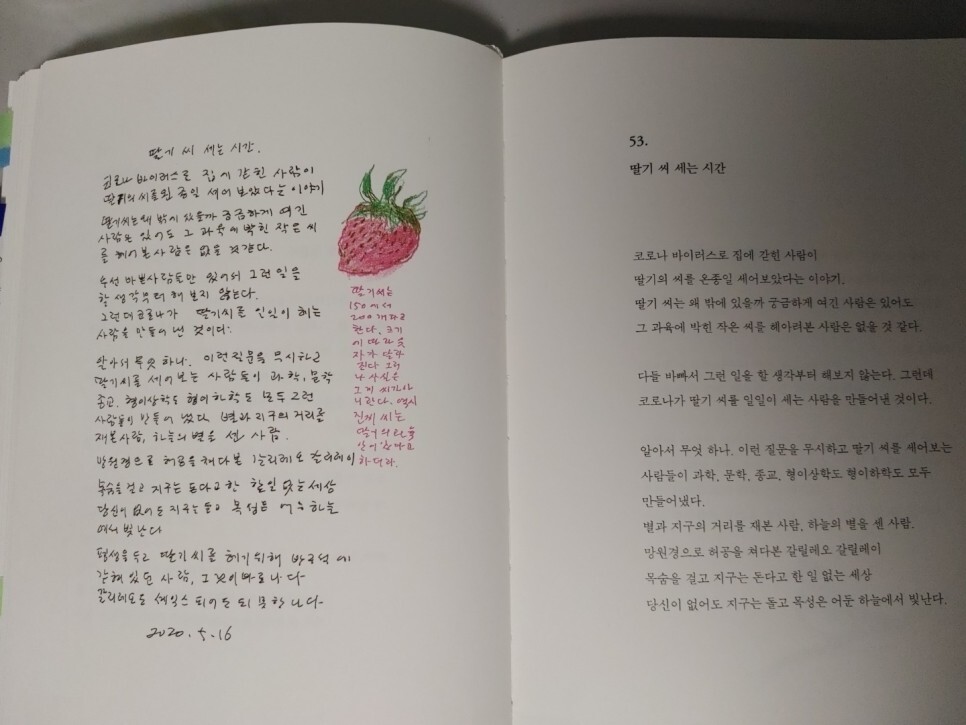 딸기 씨 세는 시간.
코로나 바이러스로 집에 갇힌 사람이
딸기의 씨를 왼 종일 세어 보았다는 이야기
딸기씨는 왜 밖에 있을까 궁금하게 여긴
사람은 있어도 그 과육에 박힌 작은 씨
를 헤어본 사람은 없을 것 같다.
우선 바쁜사람들만 있어서 그런 일을
할 생각부터 해 보지 않는다.
그런데 코로나가 딸기씨를 일일이 헤는
사람을 만들어 낸 것이다.
알아서 무엇 하나. 이런 질문을 무시하고
딸기씨를 세어보는 사람들이 과학, 문학
종교. 형이상학도 형이하학도 모두 그런
사람들이 만들어 냈다. 별과 지구의 거리를
재본 사람, 하늘의 별을 센 사람.
망원경으로 허공을 쳐다본 갈릴레오 갈릴레이
목숨을 걸고 지구는 돈다고 한 할일 없는 세상
당신이 없어도 지구는 돌고 목성은 어두운 하늘
에서 빛난다
평생을 두고 딸기씨를 헤기 위해
갇혀 있던 사람, 그것이 바로 나다
갈릴레오도 셰익스피어도 되지 못한 나다
2020. 5. 16
딸기씨는
150에서
200개라고
한다. 크기
에 따라 숫
자가 달라
진다 그러
나 사실은
그게 씨가 아
니란다. 역시
진짜 씨는
딸기의
안에 있다고
하더라.
53.
딸기 씨 세는 시간
코로나 바이러스로 집에 갇힌 사람이
딸기의 씨를 온종일 세어보았다는 이야기.
딸기 씨는 왜 밖에 있을까 궁금하게 여긴 사람은 있어도
그 과육에 박힌 작은 씨를 헤아려본 사람은 없을 것 같다.
다들 바빠서 그런 일을 할 생각부터 해보지 않는다. 그런데
코로나가 딸기 씨를 일일이 세는 사람을 만들어낸 것이다.
알아서 무엇 하나. 이런 질문을 무시하고 딸기 씨를 세어보는
사람들이 과학, 문학, 종교, 형이상학도 형이하학도 모두
만들어냈다.
별과 지구의 거리를 재본 사람, 하늘의 별을 센 사람.
망원경으로 허공을 쳐다본 갈릴레오 갈릴레이
목숨을 걸고 지구는 돈다고 한 일 없는 세상
당신이 없어도 지구는 돌고 목성은 어둔 하늘에서 빛난다.